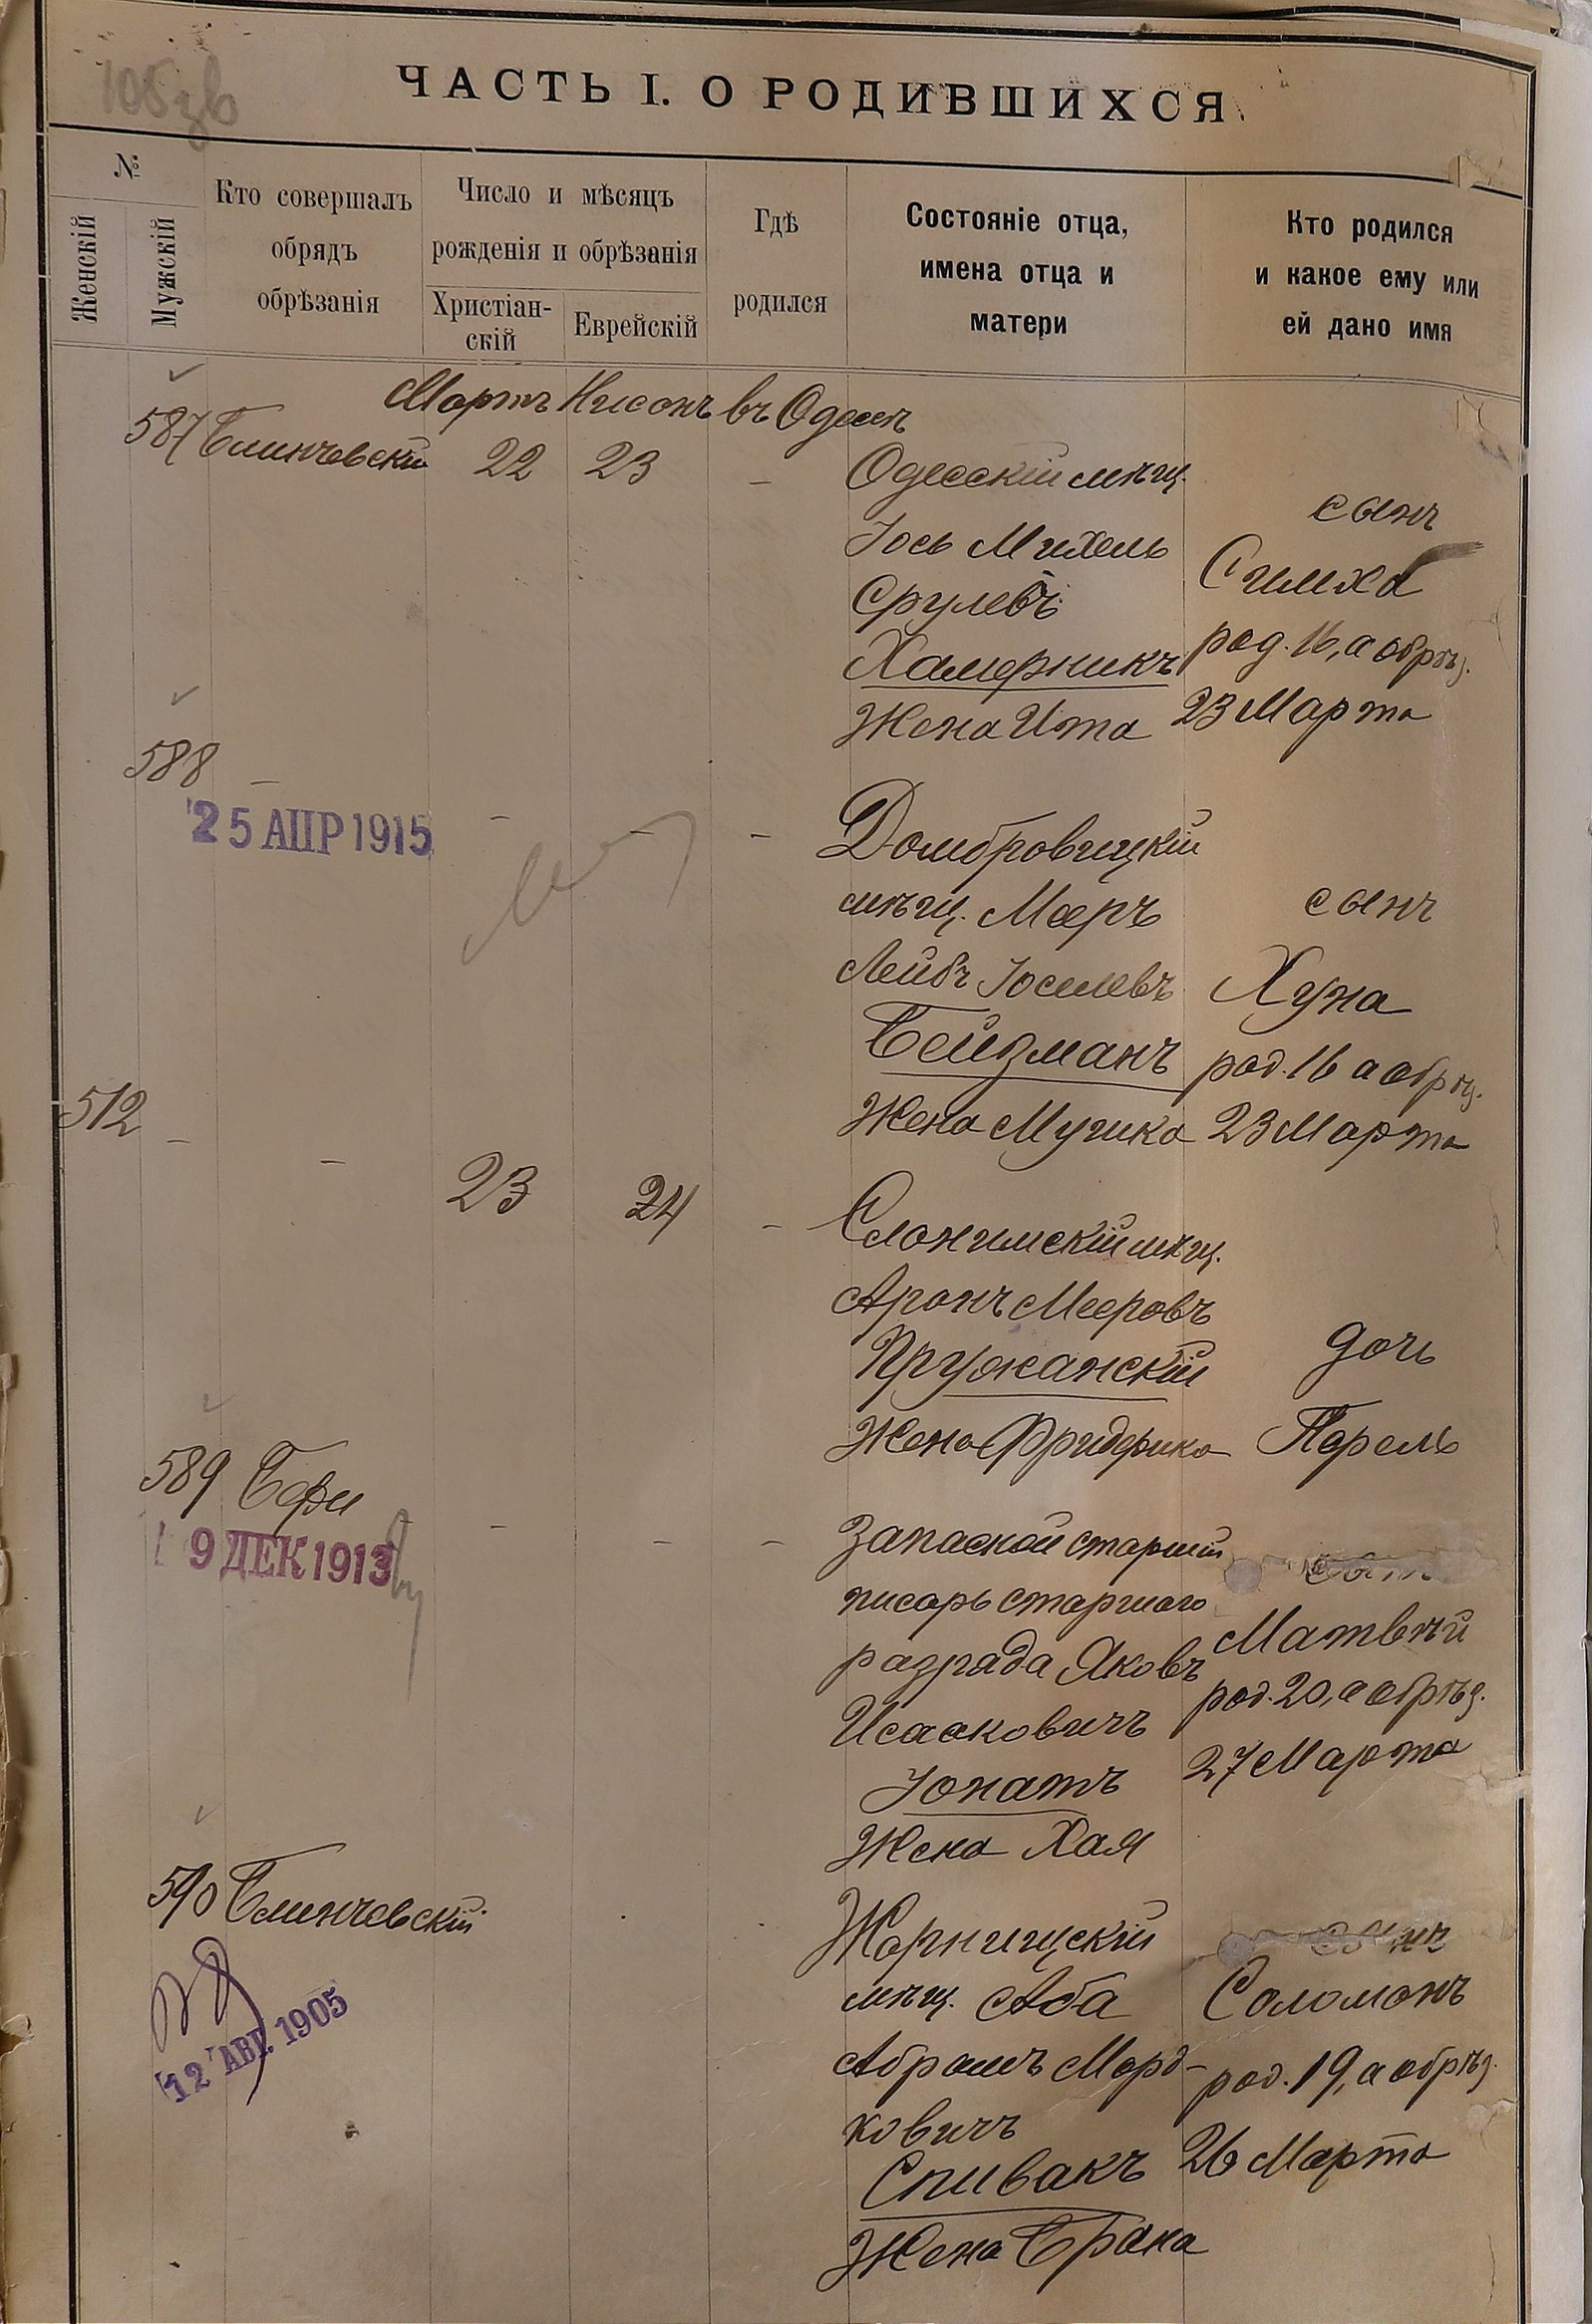 105 зв
ЧАСТЬ I. О РОДИВШИХСЯ.
№
Женскій
Мужскій
Кто совершалъ
обрядъ
обрѣзанія
Число и мѣсяцъ
рожденія и обрѣзанія
Христіан-
скій
Еврейскій
Гдѣ
родился
Состояніе отца,
имена отца и
матери
Кто родился
и какое ему или
ей дано имя
Мартъ Нисонъ въ Одессѣ
587 Блинчевскій 22 23 –
Одесскій мѣщ.
Іось Михель
Срулевъ
Хамерникъ
Жена Ита
сынъ
Симха
род. 16, а обрѣз.
23 Марта
588 – – – –
25 АПР 1915
Домбровицкій
мѣщ. Меръ
Лейбъ Іоселевъ
Бейзманъ
Жена Мушка
сынъ
Хуна
род. 16 а обрѣз.
23 Марта
512 – – 23 24 –
Слонимскій мѣщ.
Аронъ Мееровъ
Пружанскій
Жена Фридерика
дочь
Перель
589 Бери – – –
9 ДЕК 1913
Запасной старшій
писарь старшаго
разряда Яковъ
Исааковичъ
Іонатъ
Жена Хая
сынъ
Матвѣй
род. 20, а обрѣз.
27 Марта
590 Блинчевскій
12 АВГ. 1905
Жорнищскій
мѣщ. Аба
Абрамъ Морд-
ковичъ
Спивакъ
Жена Брана
сынъ
Соломонъ
род. 19, а обрѣз.
26 Марта